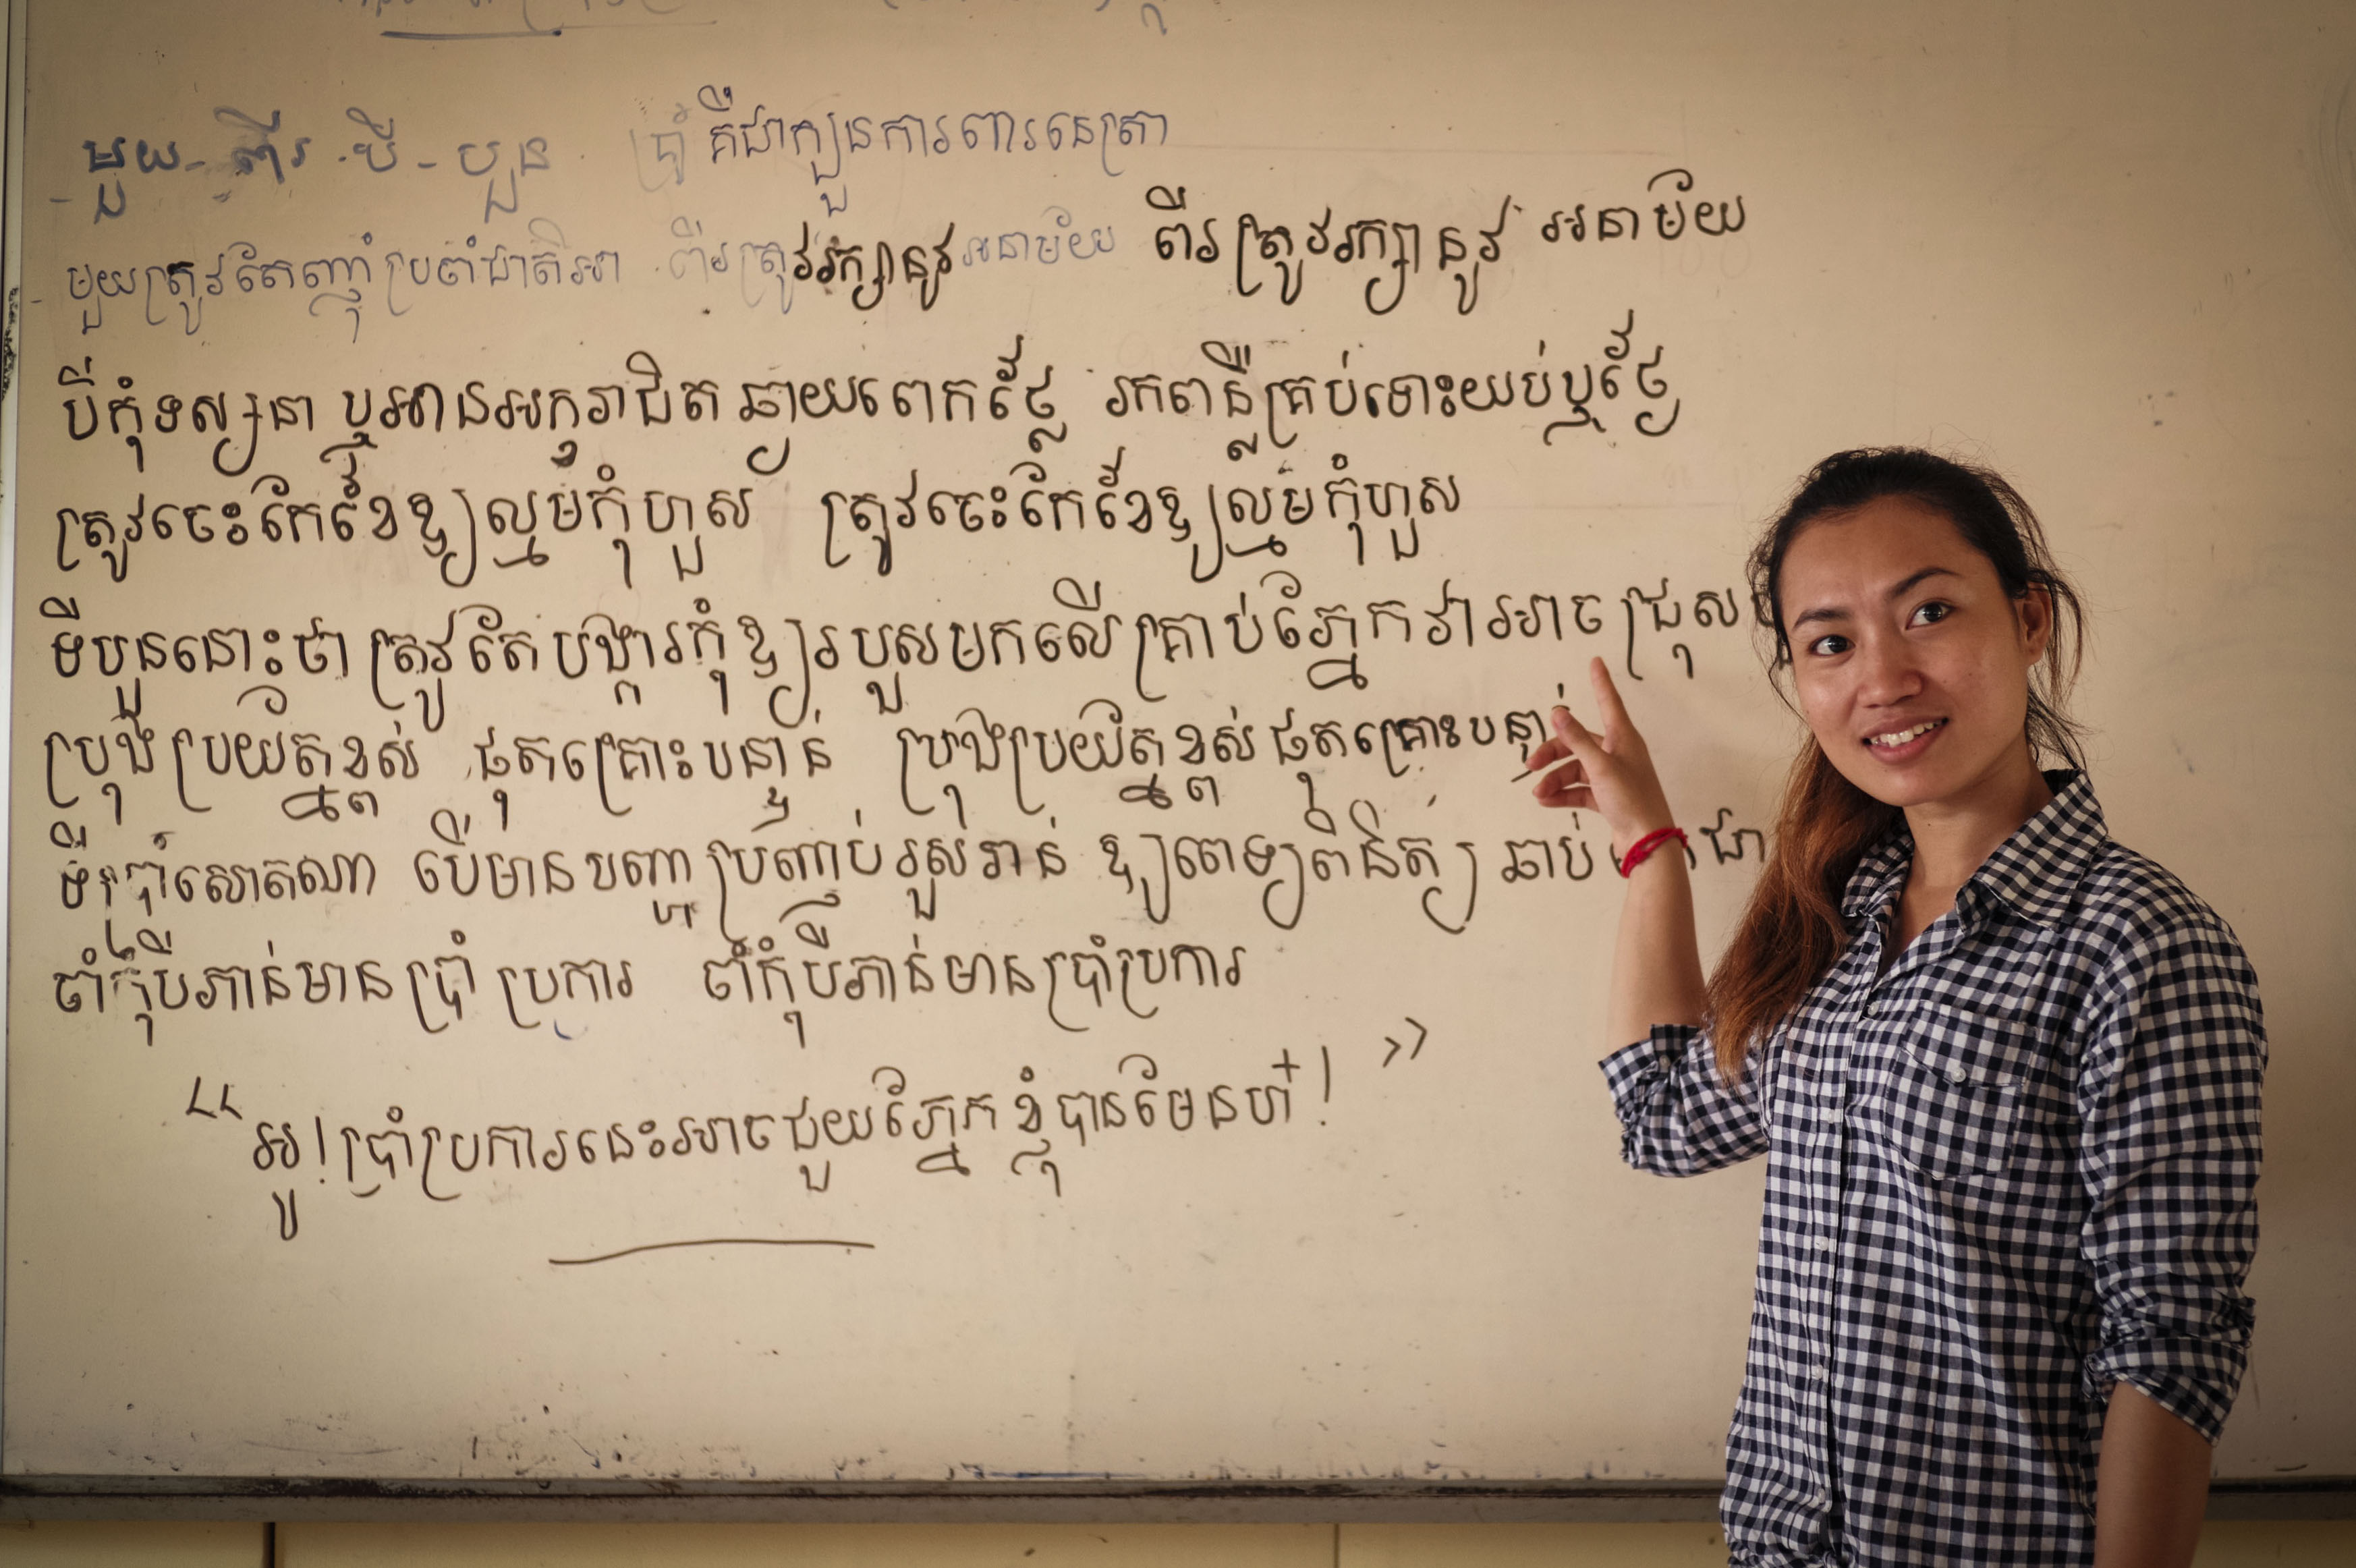 - មួយ - ពីរ - បី - បួន ប្រាំ គឺជាក្បួនការពារនេត្រា
- មួយត្រូវតែញ៉ាំប្រចាំជាតិអា ពីរត្រូវរក្សានូវអនាម័យ ពីរត្រូវរក្សានូវ អនាម័យ
បីកុំទស្សនា ឬអានអក្សរាជិត ឆ្ងាយពេកថ្លៃ រកពន្លឺគ្រប់ទោះយប់ឬថ្ងៃ
ត្រូវចេះកែខៃឱ្យល្មមកុំហួស ត្រូវចេះកែខៃឱ្យល្មមកុំហួស
ទីបួននោះថា ត្រូវតែបង្ការកុំឱ្យរបួសមកលើគ្រាប់ភ្នែកវាអាចជ្រុស
ប្រុងប្រយ័ត្នខ្ពស់ ផុតគ្រោះបន្ទាន់ ប្រុងប្រយ័ត្នខ្ពស់ផុតគ្រោះ
ទីប្រាំសោតណា បើមានបញ្ហាប្រញាប់រួសរាន់ ឱ្យពេទ្យពិនិត្យ ឆាប់ ជា
ចាំកុំបីភាន់មានប្រាំ ប្រការ ចាំកុំបីភាន់មានប្រាំប្រការ
“អូ! ប្រាំប្រការនេះអាចជួយភ្នែកខ្ញុំបានមែនហ៎! ”